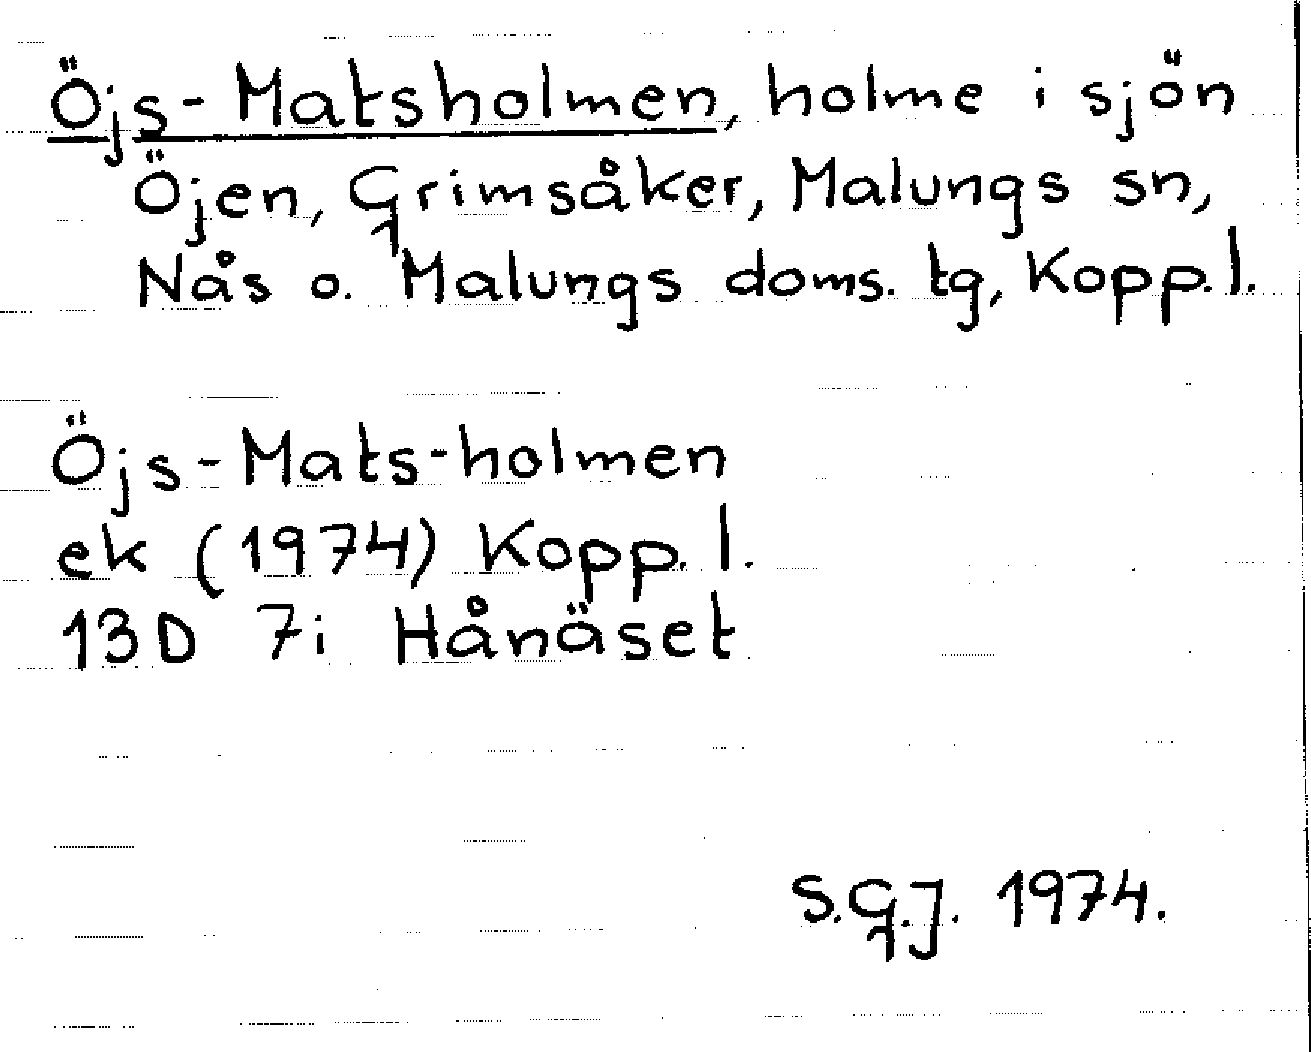 Öjs-Matsholmen, holme i sjön
Öjen, Grimsåker, Malungs sn,
Nås o. Malungs doms. tg, Kopp. l.
Öjs-Mats-holmen
ek (1974) Kopp. l.
13D 7i Hånäset
S.G.J. 1974.